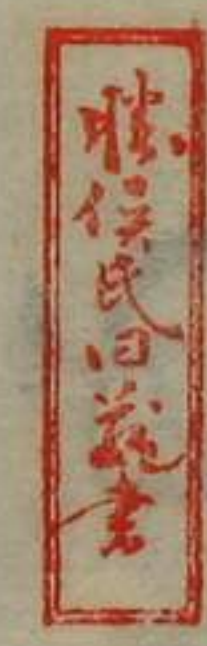 勝俣氏旧蔵書